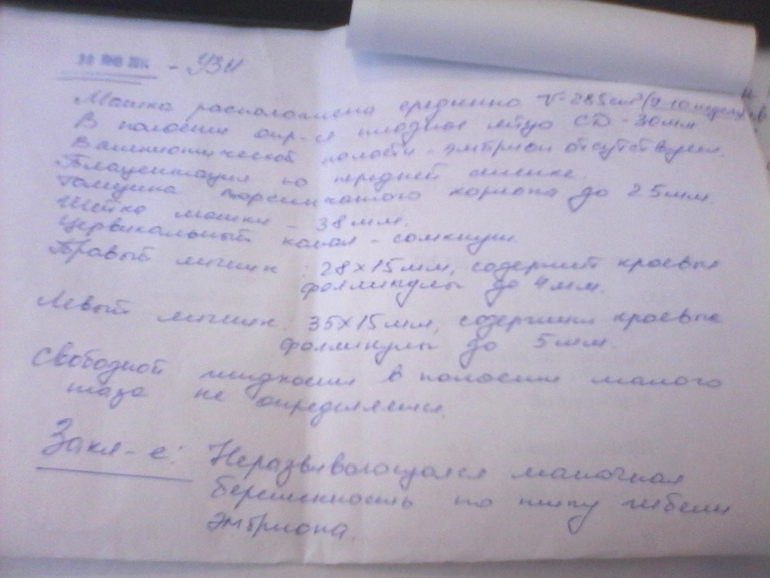 30 ЯНВ 2014 - УЗИ
Матка расположена срединно V-285см³/9-10 недель
В полости опр-ся плодное яйцо СД - 30мм
В амниотической полости - эмбрион отсутствует.
Плацентация по передней стенке.
Толщина ворсинчатого хориона до 25мм.
Шейка матки - 38мм.
Цервикальный канал - сомкнут.
Правый яичник : 28×15мм, содержит краевые
фолликулы до 4мм.
Левый яичник. 35×15мм, содержит краевые
фолликулы до 5мм.
Свободной жидкости в полости малого
таза не определяется.
Закл-е: Неразвивающаяся маточная
беременность по типу гибели
эмбриона.